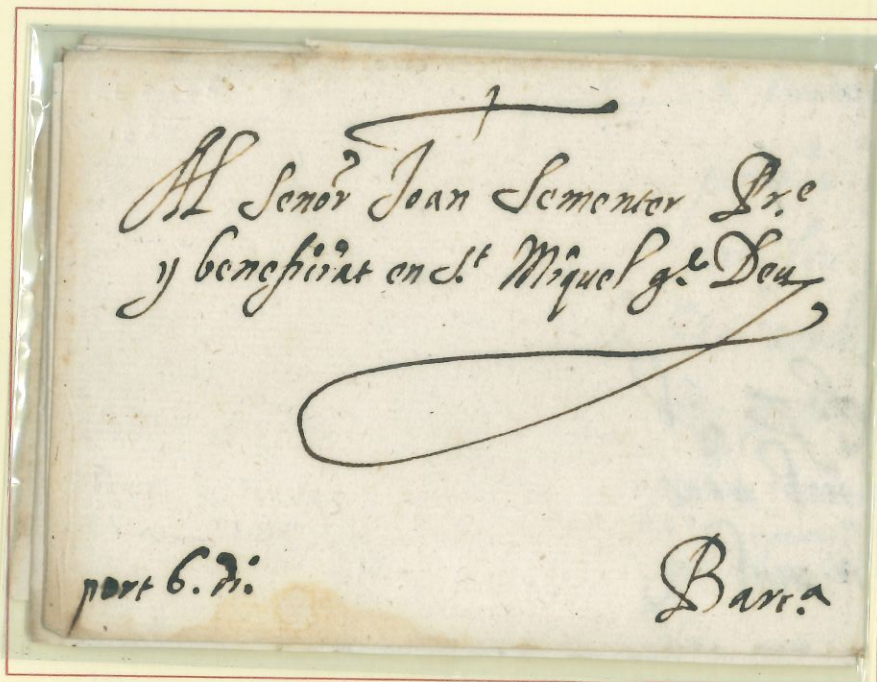 Al Senor Joan Sementer Pr.e
y beneficiat en S.t Miquel g.e Deu
port 6. di.
Barc.a